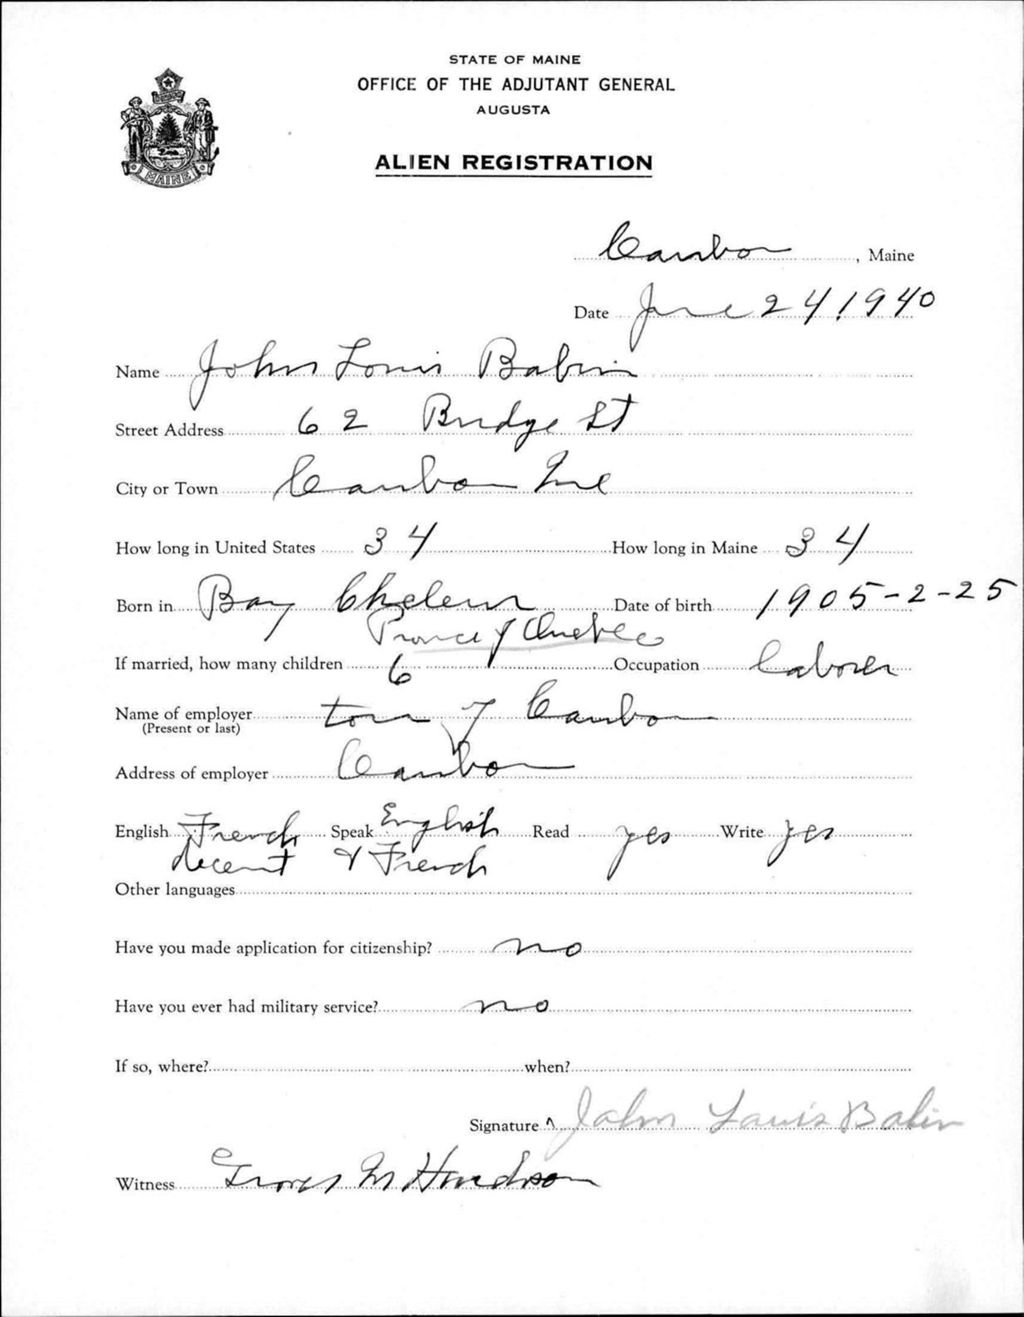 STATE OF MAINE
OFFICE OF THE ADJUTANT GENERAL
AUGUSTA
ALIEN REGISTRATION
MAINE
Caribou, Maine
Date June 24, 1940
Name John Louis Babin
Street Address 62 Bridge St
City or Town Caribou Me
How long in United States 34 How long in Maine 34
Born in Bay Cheleur Date of birth 1905-2-25
Province of Quebec
If married, how many children 6 Occupation Laborer
Name of employer town of Caribou
(Present or last)
Address of employer Caribou
English French Speak English Read yes Write yes
decent & French
Other languages
Have you made application for citizenship? no
Have you ever had military service? no
If so, where? when?
Signature John Louis Babin
Witness M